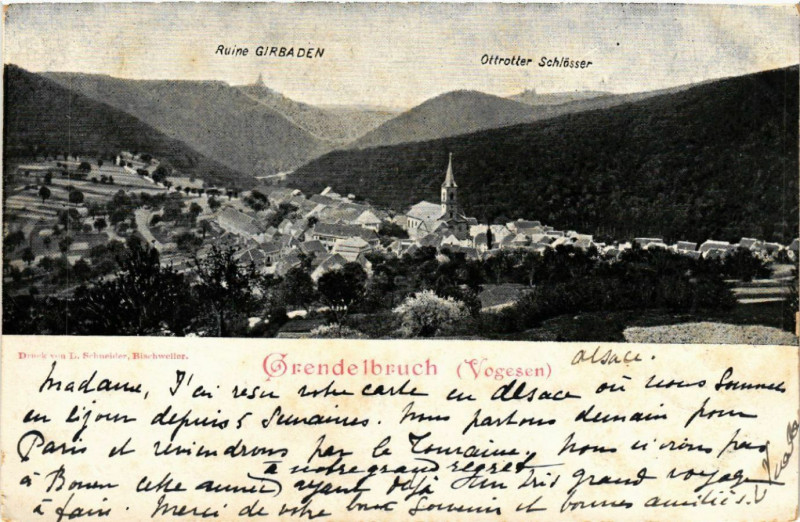 Ruine GIRBADEN
Ottrotter Schlösser
Druck von L. Schneider, Bischweiler.
Grendelbruch (Vogesen)
Alsace.
Madame, J'ai reçu votre carte en Alsace où nous sommes
en séjour depuis 5 semaines. Nous partons demain pour
Paris et reviendrons par la Touraine. Nous n'irons pas
à notre grand regret
à Rouen cette année ayant déjà un très grand voyage
à faire. Merci de votre bon souvenir et bonnes amitiés.